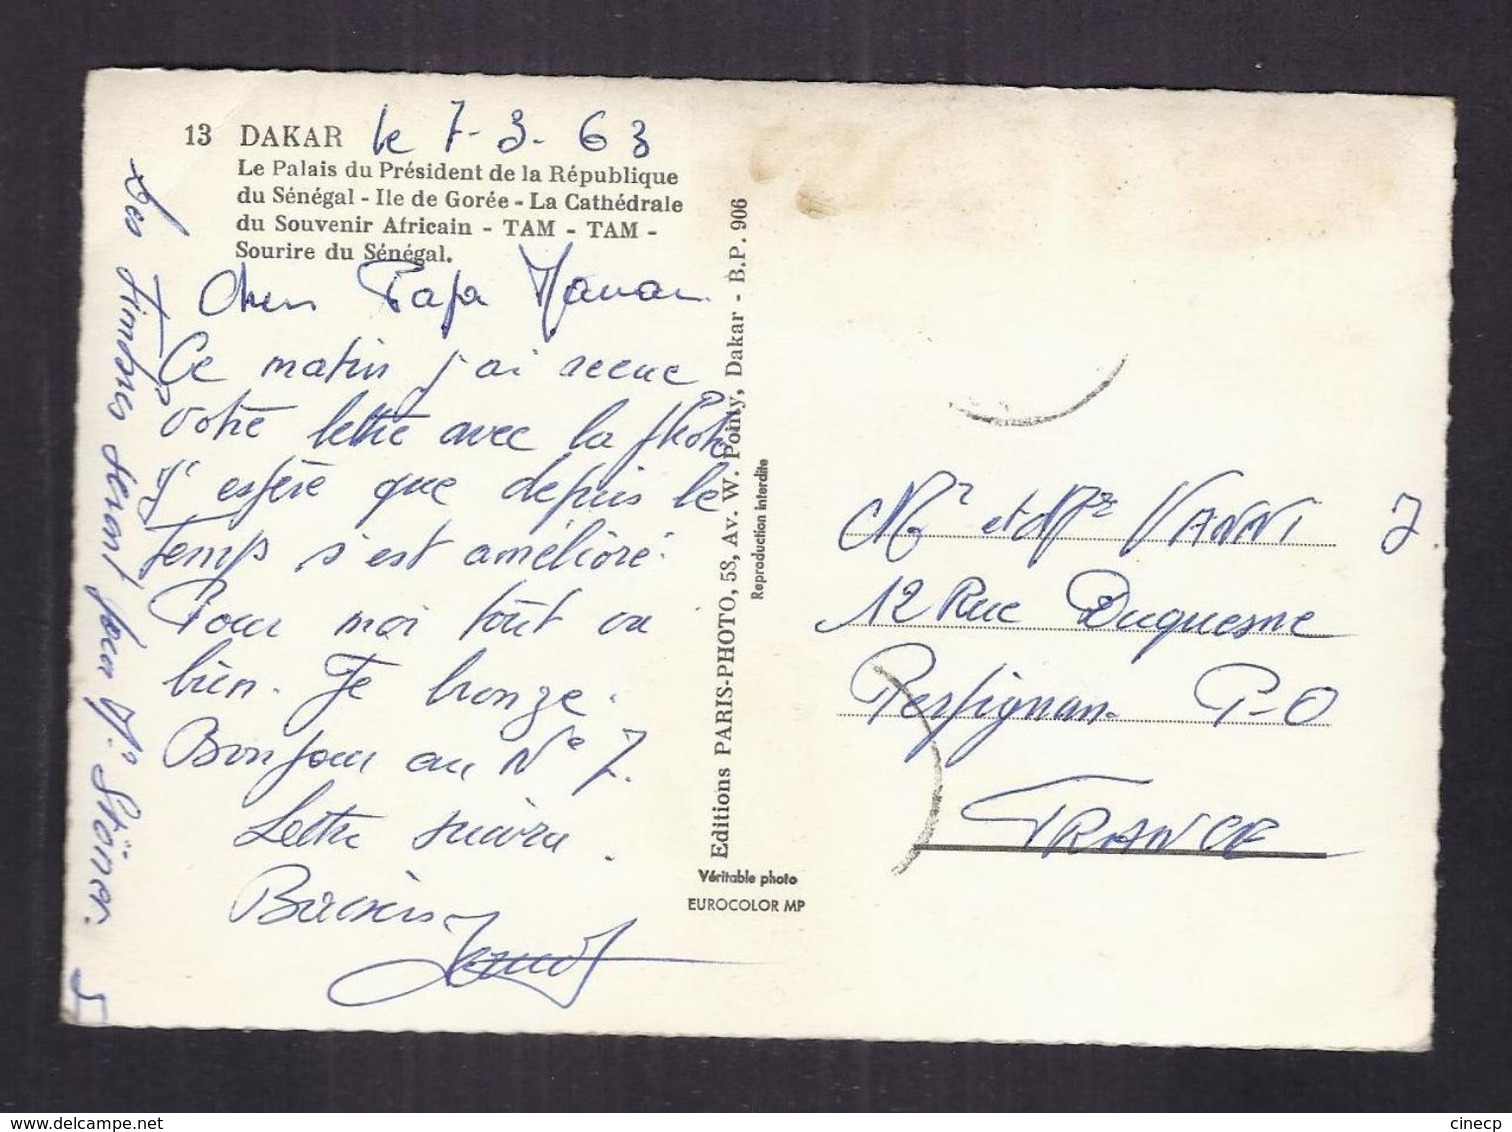 13 DAKAR le 7-3-63
Le Palais du Président de la République
du Sénégal - Ile de Gorée - La Cathédrale
du Souvenir Africain - TAM - TAM -
Sourire du Sénégal.
Chers Papa Maman
Ce matin j'ai recue
votre lettre avec la photo
J'espère que depuis le
temps s'est amélioré.
Pour moi tout va
bien. Je bronze.
Bonjour au N° 7.
Lettre suivra.
Baisers
Les timbres seront pour Mr Stöner.
Editions PARIS-PHOTO, 53, Av. W. Ponty, Dakar - B.P. 906
Reproduction interdite
Véritable photo
EUROCOLOR MP
Mr et Me VANNI J.
12 Rue Duquesne
Perpignan. P-O
FRANCE
cinecp